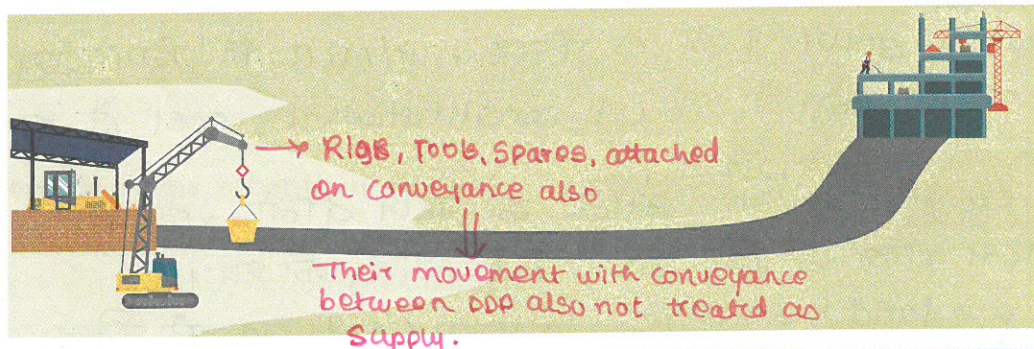 → Rigs, Tools, Spares, attached
on conveyance also
Their movement with conveyance
between DDP also not treated as
Supply.